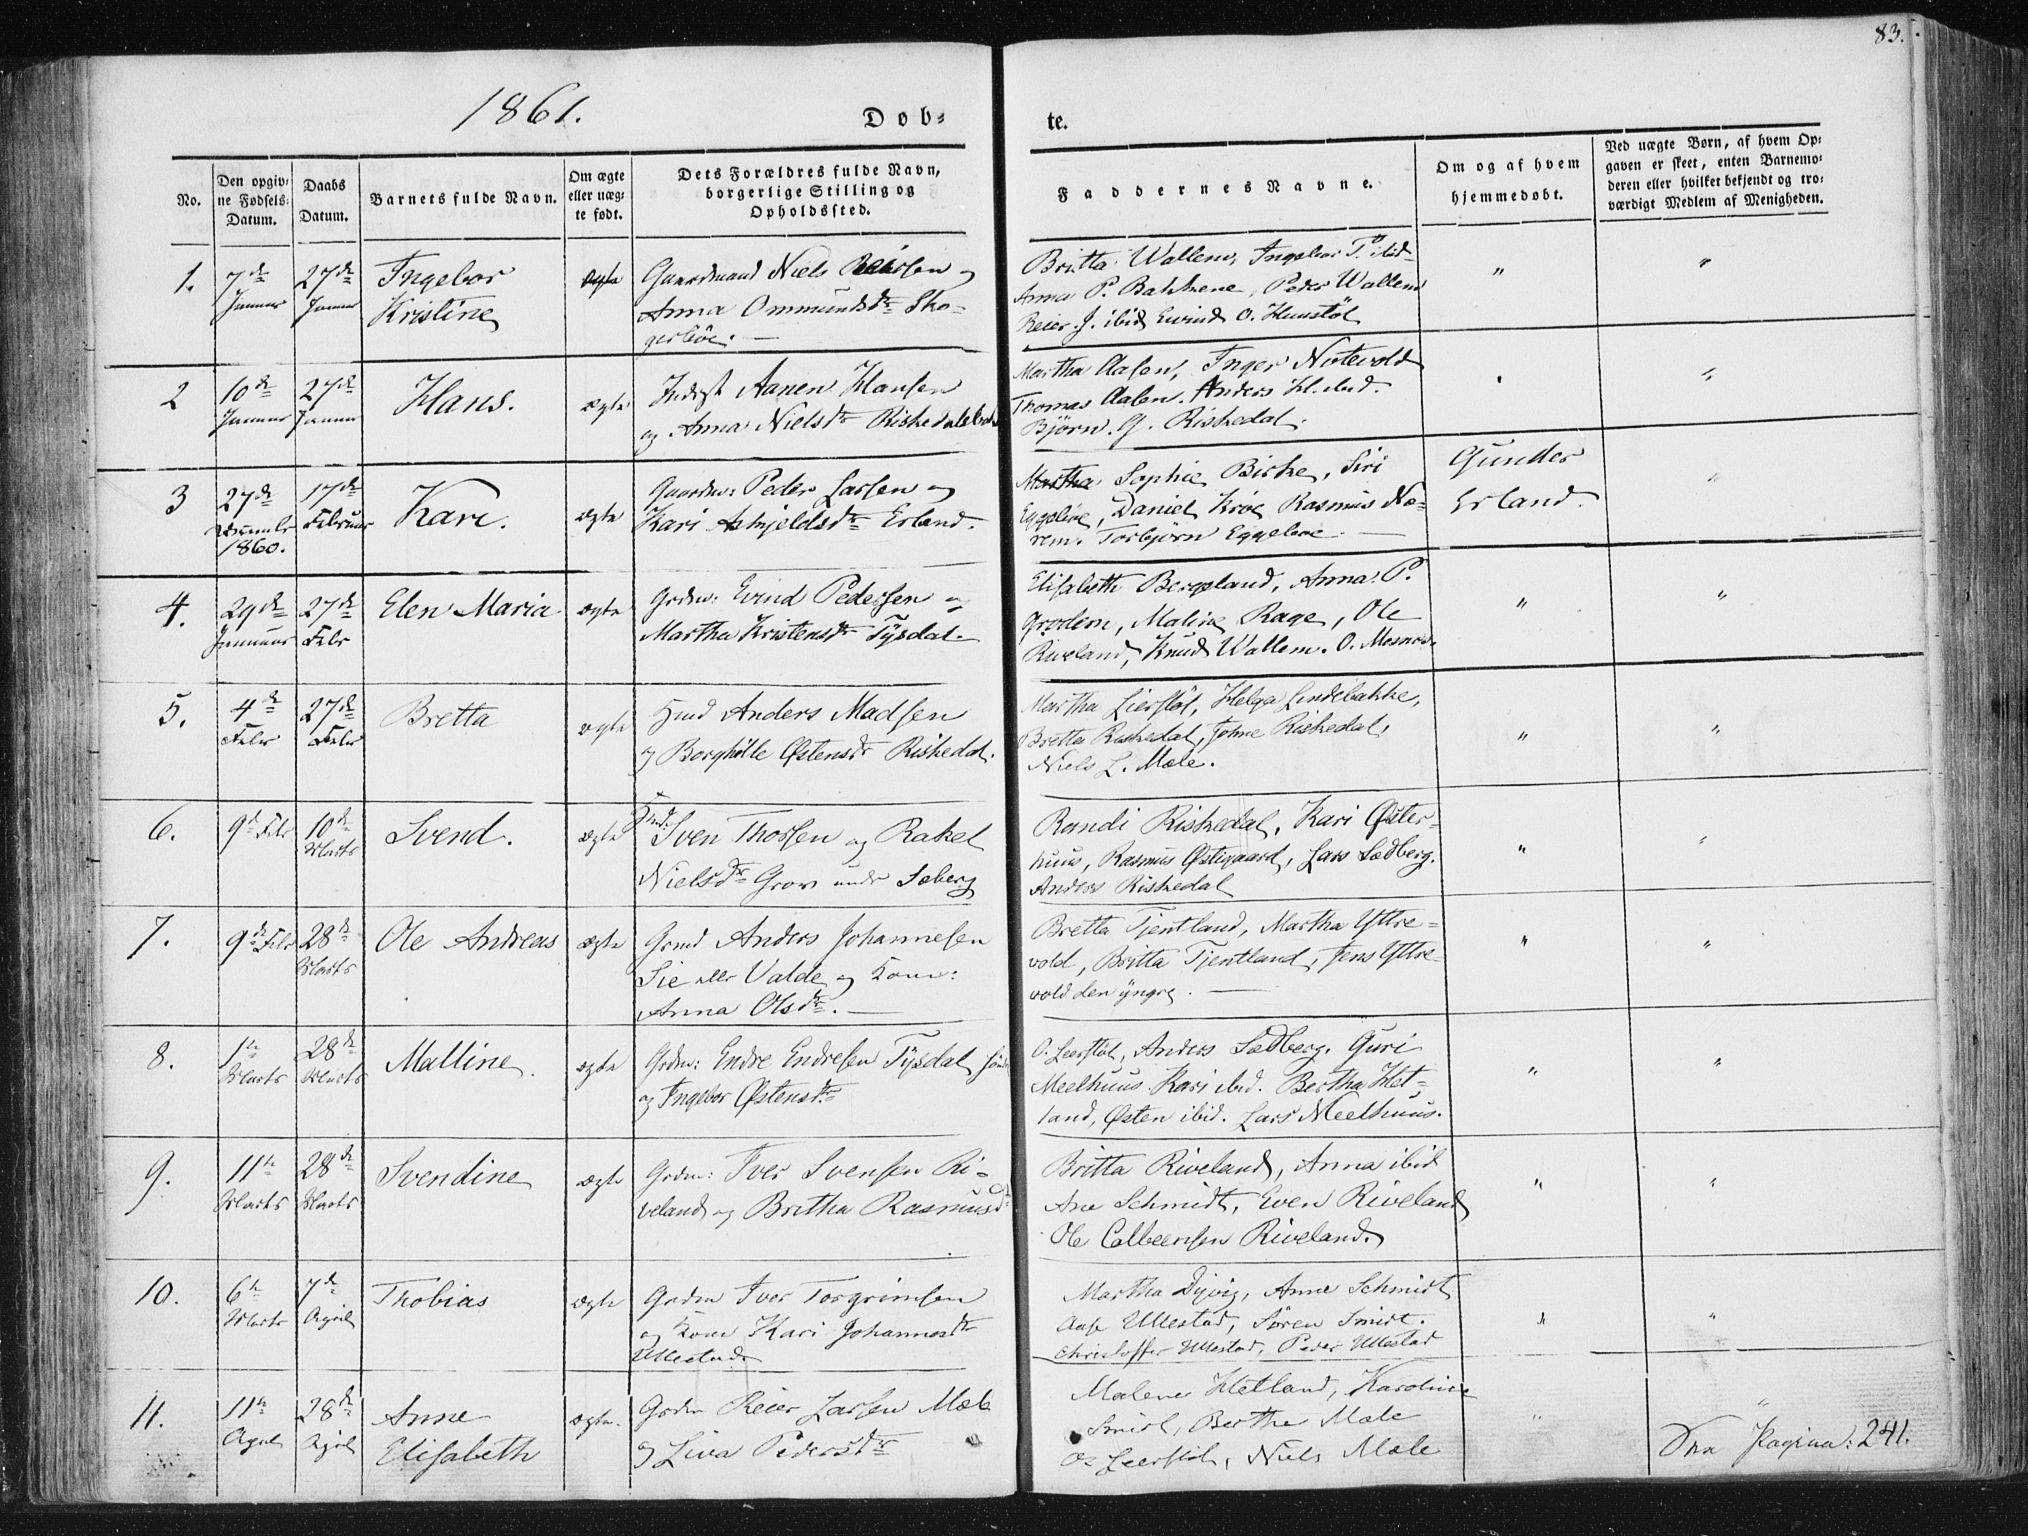 83.
1861.
Døb-
te.
No.
Den opgiv-
ne Fødsels-
Datum.
Daabs
Datum.
Barnets fulde Navn.
Om ægte
eller uæg-
te født.
Dets Forældres fulde Navn,
borgerlige Stilling og
Opholdssted.
Faddernes Navne.
Om og af hvem
hjemmedøbt.
Ved uægte Børn, af hvem Op-
gaven er skeet, enten Barnemo-
deren eller hvilket bekjendt og tro-
værdigt Medlem af Menigheden.
1.
7de
Januar
27de
Januar
Ingebor
Kristine
ægte
Gaardmand Niels
Anna Ommundsdr Sko-
gerbøe. —
Britta Wallem, Ingebor T. ibid
Anna P. Bakkene, Peder Wallem
Reier J. ibid Ewind O. Hunstöl
"
"
2
10de
Januar
27de
Januar
Hans.
ægte
Inderst Aanen Hansen
og Anna Nielsdr
Martha Aasen, Inger Nutevold
Thomas Aasen. Anders H. ibid.
Björn. G. Riskedal.
"
3
27de
1860.
17de
Februar
Kari.
ægte
Gaardm: Peder Larsen og
Kari Askjeldsdr Erland.
Martha Sophie Birke, Siri
Eggeböe, Daniel Kröe Rasmus Næ-
rem. Torbjørn Eggeboe. —
Gunder
Erland.
"
4.
29de
Januar
27de
Febr
Elen Maria
ægte
Grdm: Evind Pedersen og
Martha Kristensdr Tÿsdal.
Elisabeth Bergeland, Anna P.
Grødem, Maline Rage, Ole
Riveland, Knud Wallem. O. Mosnes.
"
"
5.
4de
Febr
27de
Febr
Bretta
ægte
Hmd Anders Madsen
og Borghilde Østensdr Riskedal.
Martha Leerstöl, Helga Lindebakke,
Bretta Riskedal, Johne Riskedal,
Niels L. Mæle.
"
"
6.
9d Febr
10de
Marts
Svend.
ægte
Hmd: Sven Thorsen og Rakel
Nielsdr Grov under Søberg
Randi Riskedal, Kari Øster-
huus, Rasmus Østigaard, Lars Sædberg.
Anders Riskedal
"
"
7.
9de Febr
28de
Marts
Ole Andreas
ægte
Grmd Anders Johannesen
Sie eller Valde og Kone:
Anna Olsdr. —
Bretta Tjentland, Martha Yttre-
vold, Britta Tjentland, Jens Yttre-
vold den ÿngre. —
"
"
8.
1te
Marts
28de
Marts
Malline.
ægte
Grdm: Endre Endresen Tÿsdal
og Ingebor Østensdr
O. Leerstöl, Anders Sædberg. Guri
Meelhuus. Kari ibid. Bertha Het-
land, Østen ibid. Lars Meelhuus.
"
"
9.
11te
Marts
28de
Marts
Svendine
ægte
Grdm: Iver Svensen Ri-
veland og Britha Rasmusdr
Britta Riveland, Anna ibid
Ane Schmidt, Even Riveland
Ole Colbeensen Riveland.
"
"
10.
6te
Marts
7de
April
Thobias
ægte
Grdm Iver Torgrimsen
og Kone Kari Johannesdr
Ullestad
Martha Dyvig, Anne Schmidt
Aase Ullestad, Søren Smidt.
Christoffer Ullestad, Peder Ullestad
"
"
11.
11te
April
28de
April
Anne
Elisabeth
ægte.
Grdm Reier Larsen Mæle
og Liva Pedersdr
Malene Hetland, Karoline
Smidt, Berthe Mæle
Leerstöl, Niels Mæle
"
"
Pagina: 241.